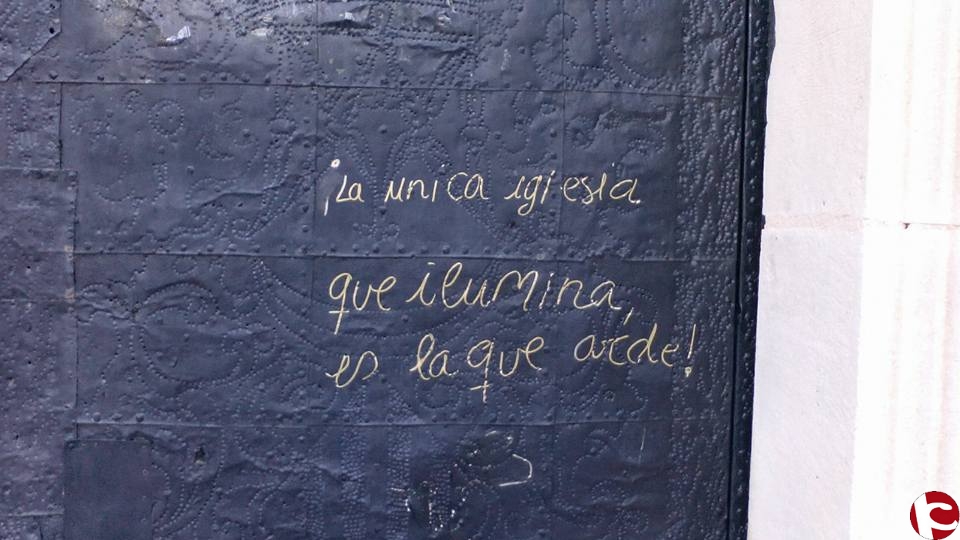 ¡La unica iglesia
que ilumina,
es la que arde!